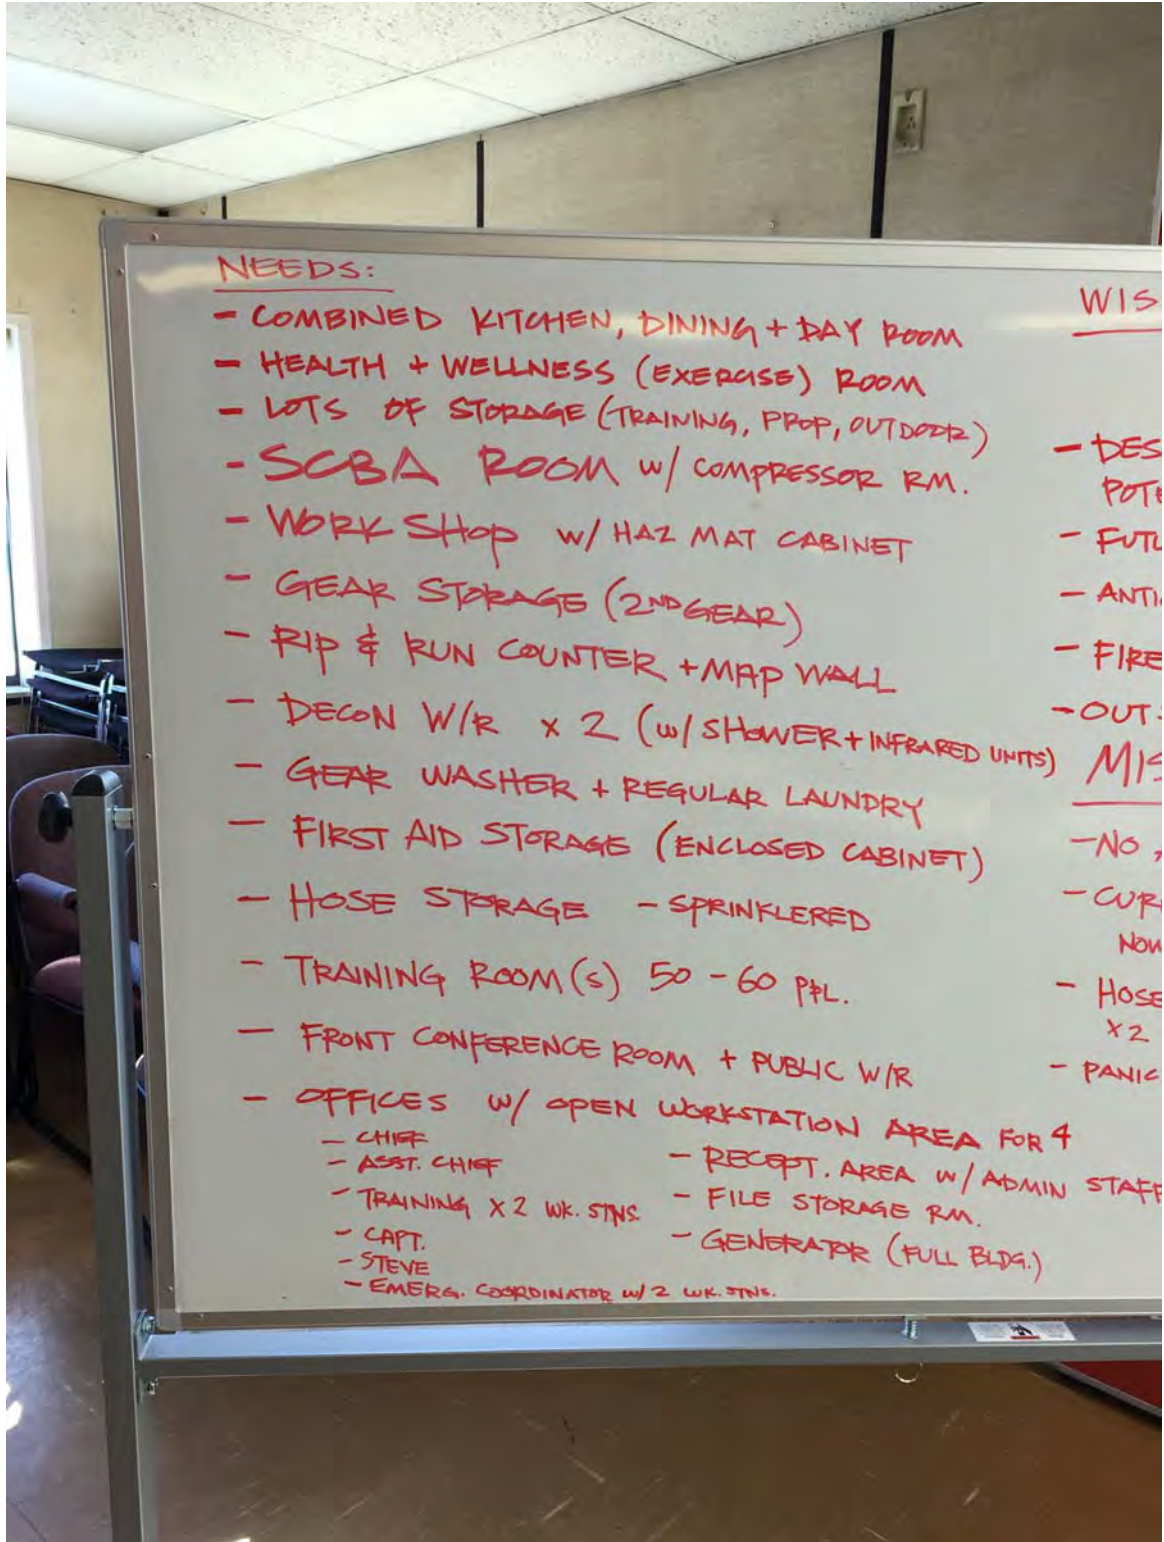 NEEDS:
- COMBINED KITCHEN, DINING + DAY ROOM
- HEALTH + WELLNESS (EXERCISE) ROOM
- LOTS OF STORAGE (TRAINING, PROP, OUTDOOR)
- SCBA ROOM W/ COMPRESSOR RM.
- WORK SHOP W/ HAZ MAT CABINET
- GEAR STORAGE (2ND GEAR)
- RIP & RUN COUNTER + MAP WALL
- DECON W/R X 2 (W/ SHOWER + INFRARED UNITS)
- GEAR WASHER + REGULAR LAUNDRY
- FIRST AID STORAGE (ENCLOSED CABINET)
- HOSE STORAGE - SPRINKLERED
- TRAINING ROOM(S) 50 - 60 PPL.
- FRONT CONFERENCE ROOM + PUBLIC W/R
- OFFICES W/ OPEN WORKSTATION AREA FOR 4
- CHIEF
- ASST. CHIEF
- TRAINING X 2 WK. STNS.
- CAPT.
- STEVE
- EMERG. COORDINATOR W/ 2 WK. STNS.
- RECEPT. AREA W/ ADMIN STAFF
- FILE STORAGE RM.
- GENERATOR (FULL BLDG.)
WIS
- DES
POTE
- FUTU
- ANTI
- FIRE
- OUT
MIS
- NO
- CUR
NOW
- HOSE
X 2
- PANIC